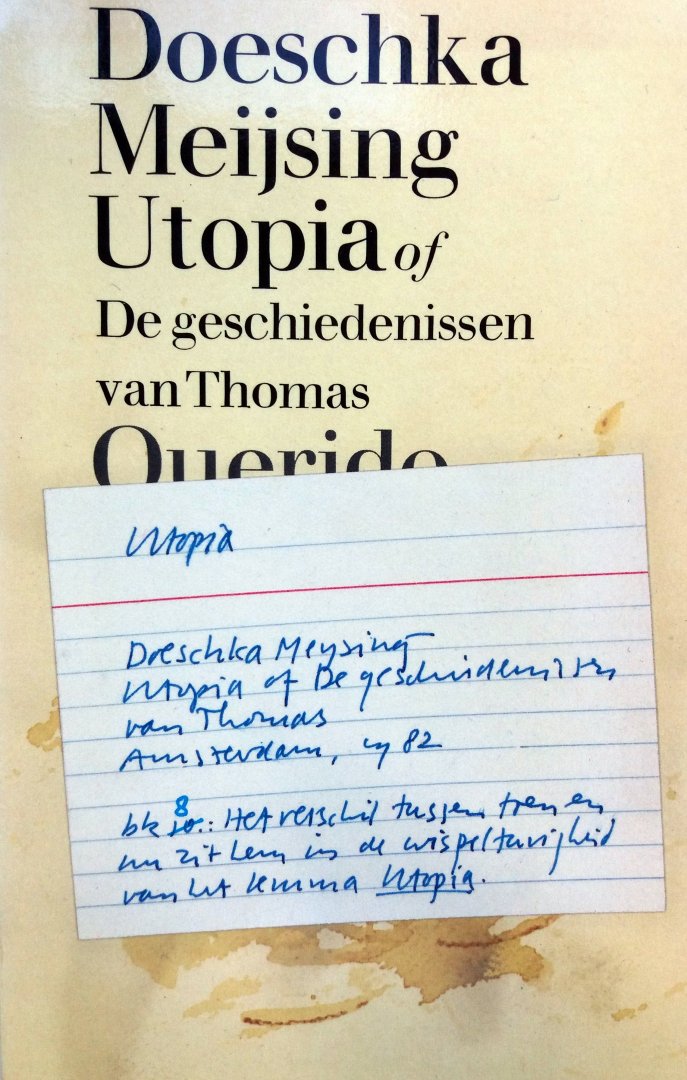 Doeschka
Meijsing
Utopia of
De geschiedenissen
van Thomas
Querido
Utopia
Doeschka Meysing
Utopia of De geschiedenissen
van Thomas
Amsterdam, 1982
blz 8.: Het verschil tussen toen en
nu zit hem in de wispelturigheid
van het lemma Utopia.